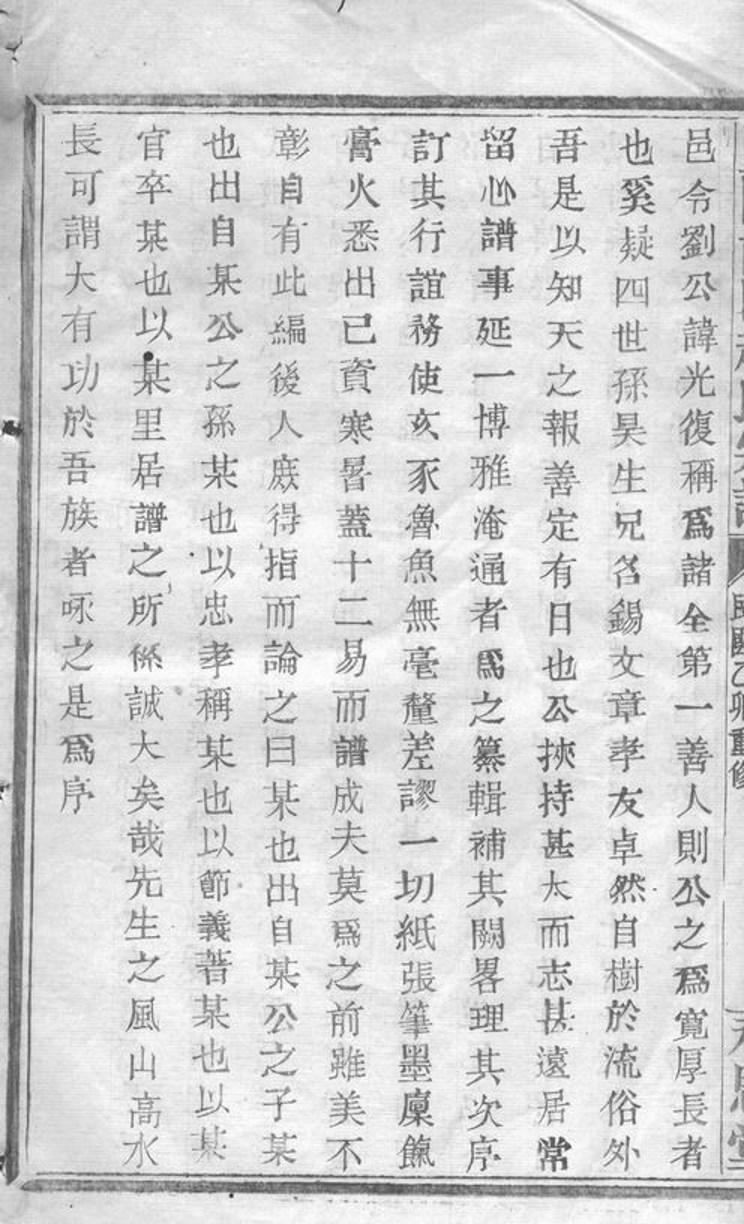 民國乙卯重修
邑令劉公諱光復稱爲諸全第一善人則公之爲寛厚長者
也奚疑四世孫昊生兄名錫文章孝友卓然自樹於流俗外
吾是以知天之報善定有日也公挾持甚大而志甚遠居常
留心譜事延一博雅淹通者爲之纂輯補其闕畧理其次序
訂其行誼務使亥豕魯魚無毫釐差謬一切紙張筆墨廩餼
膏火悉出已資寒暑蓋十二易而譜成夫莫爲之前雖美不
彰自有此編後人庶得指而論之曰某也出自某公之子某
也出自某公之孫某也以忠孝稱某也以節義著某也以某
官卒某也以某里居譜之所係誠大矣哉先生之風山高水
長可謂大有功於吾族者咏之是爲序